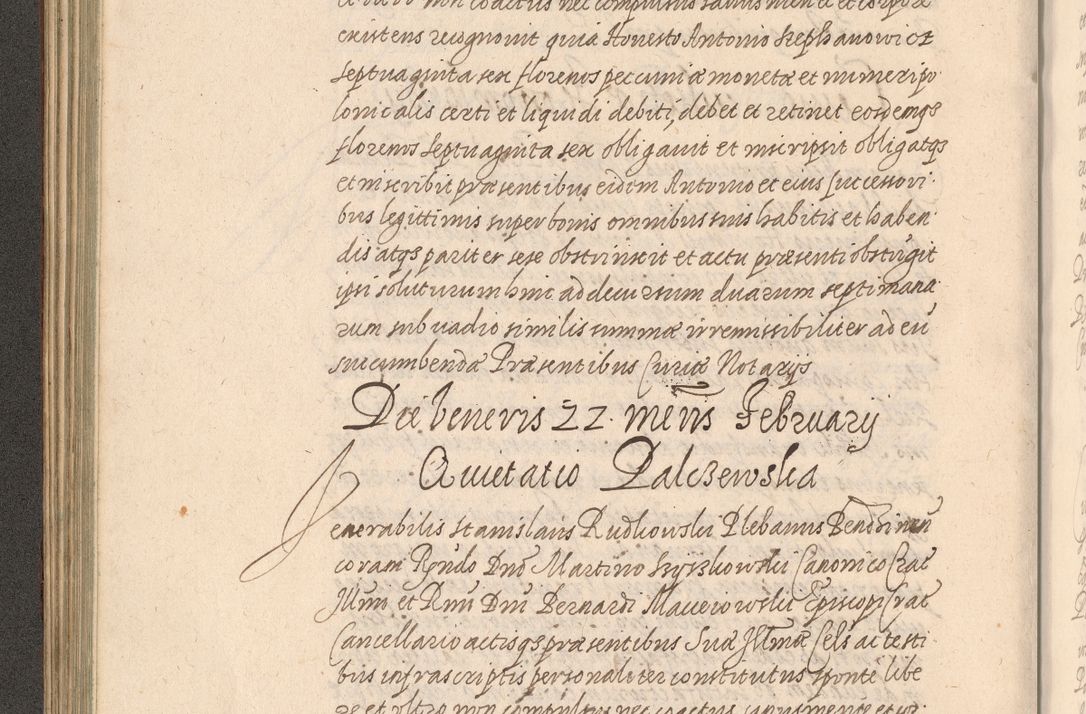 et ultro non coactus nec compulsus sanus mente et corpore
existens recognovit quia Honesto Antonio Stephanowicz
septuaginta sex florenos pecuniæ monetæ et numeri po
lonicalis certi et liquidi debiti, debet et retinet eosdemqs
florenos septuaginta sex obligavit et inscripsit obligatqs
et inscribit præsentibus eidem Antonio et eius successori
bus legittimis super bonis omnibus suis habitis et haben
dis atqs pariter sese obstrinscit et actu præsenti obstrigit
ipsi soluturum hinc ad decursum duarum septimana
rum sub vadio similis summæ irremissibiliter ad eū
succumbendæ Præsentibus Curiæ Notarijs
Die Veneris 22. Mensis February
Quietatio Palczewska
Venerabilis Stanislaus Rudkowski Plebanus Bendzinen
coram Rndo Dno Martino Szyszkowski Canonico Crac
Illmi et Rmi Dni Bernardi Macieiowski Episcopi Crac
Cancellario actisqs præsentibus Suæ Illmæ Cels ac testi
bus infrascriptis personaliter constitutus sponte libe
re et ultro non compulsus nec coactus sanus mente et cor